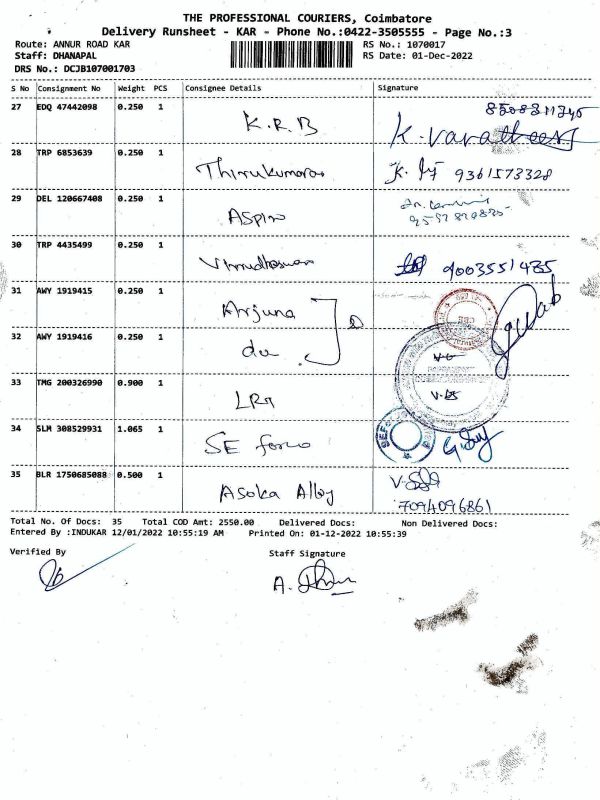 THE PROFESSIONAL COURIERS, Coimbatore
Delivery Runsheet - KAR - Phone No.:0422-3505555 - Page No.:3
Route: ANNUR ROAD KAR
RS No.: 1070017
Staff: DHANAPAL
RS Date: 01-Dec-2022
DRS No.: DCJB107001703
S No Consignment No Weight PCS Consignee Details Signature
27 EDQ 47442098 0.250 1 K.R.B
28 TRP 6853639 0.250 1 Thirukumaran 9361573328
29 DEL 120667408 0.250 1 ASPIN
30 TRP 4435499 0.250 1 9003551485
31 AWY 1919415 0.250 1 Arjuna
32 AWY 1919416 0.250 1 do
33 TMG 200326990 0.900 1
34 SLM 308529931 1.065 1 SE force
35 BLR 1750685088 0.500 1 Asoka Alloy
7094096861
Total No. Of Docs: 35 Total COD Amt: 2550.00 Delivered Docs: Non Delivered Docs:
Entered By :INDUKAR 12/01/2022 10:55:19 AM Printed On: 01-12-2022 10:55:39
Verified By Staff Signature